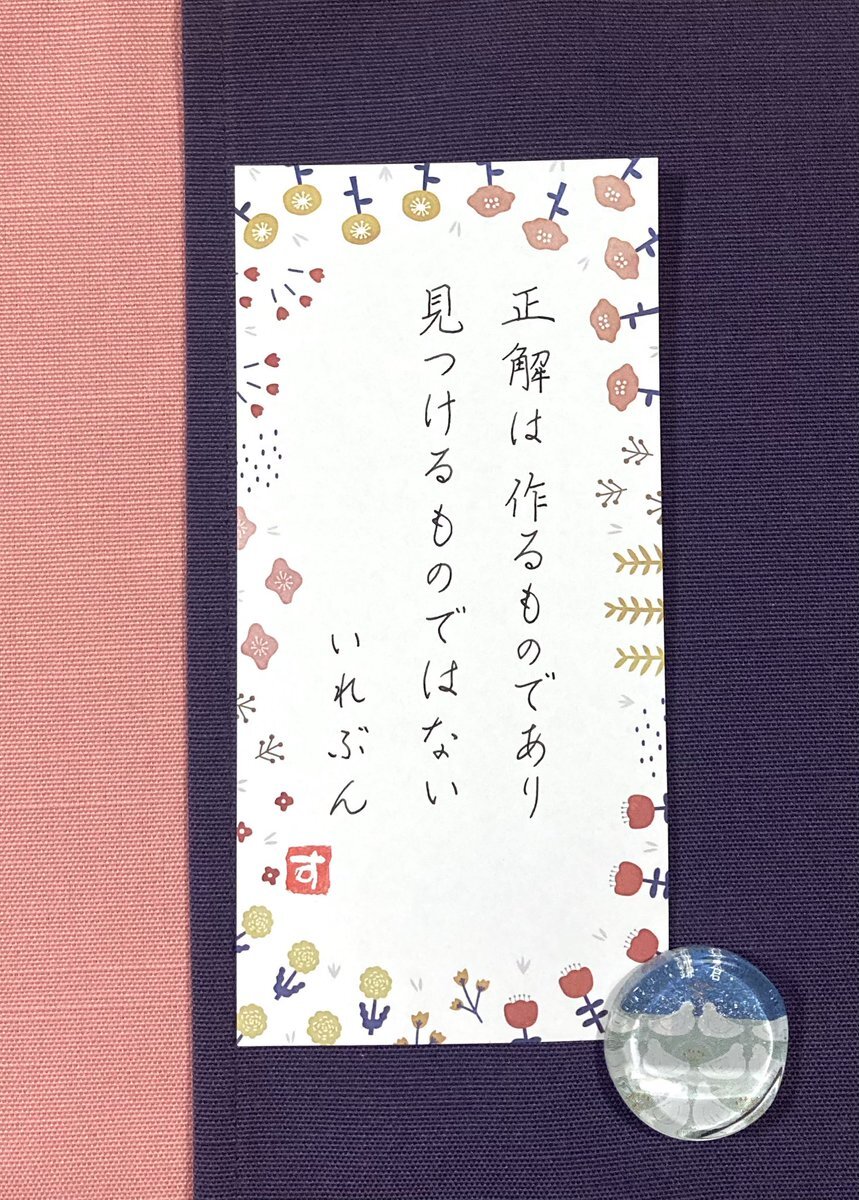 正解は 作るものであり
見つけるものではない
いれぶん
す